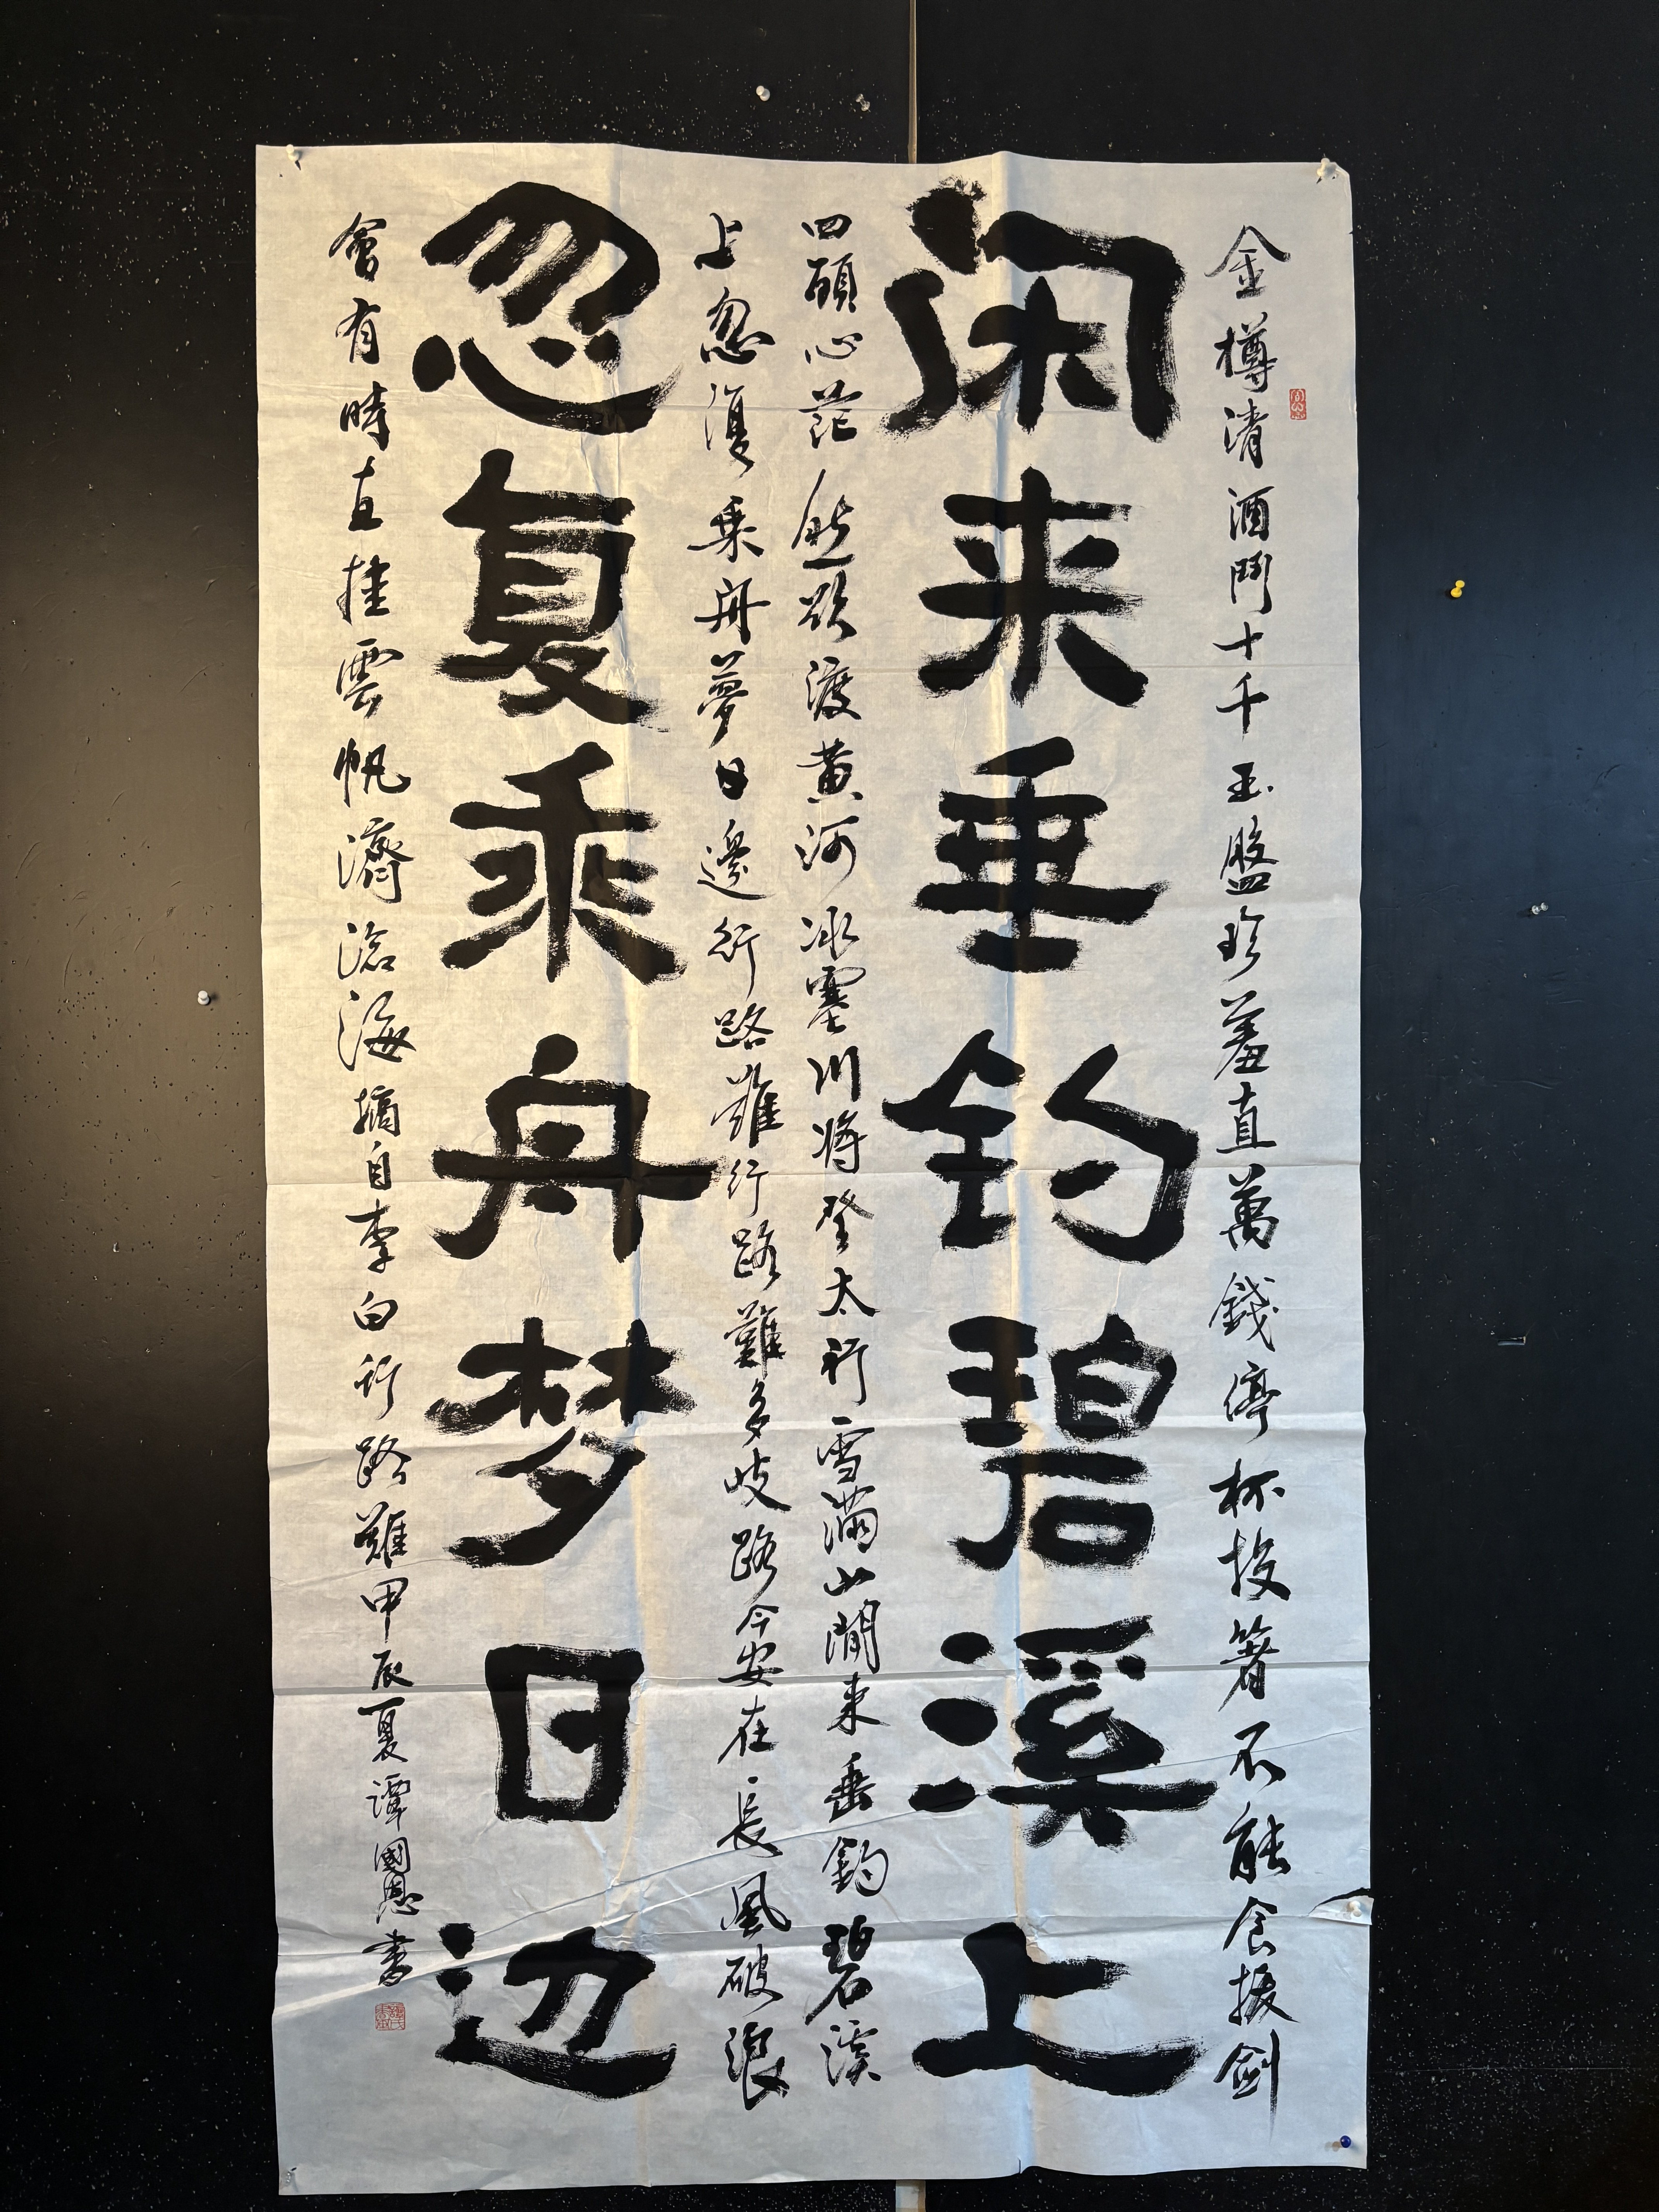 金樽清酒鬥十千玉盤珍羞直萬錢停杯投箸不能食拔劍
闲来垂钓碧溪上
四顧心茫然欲渡黄河冰塞川将登太行雪滿山閒来垂釣碧溪
上忽復乘舟夢日邊行路難行路難多歧路今安在長風破浪
忽复乘舟梦日边
會有時直挂雲帆濟滄海摘自李白行路難甲辰夏譚國恩書